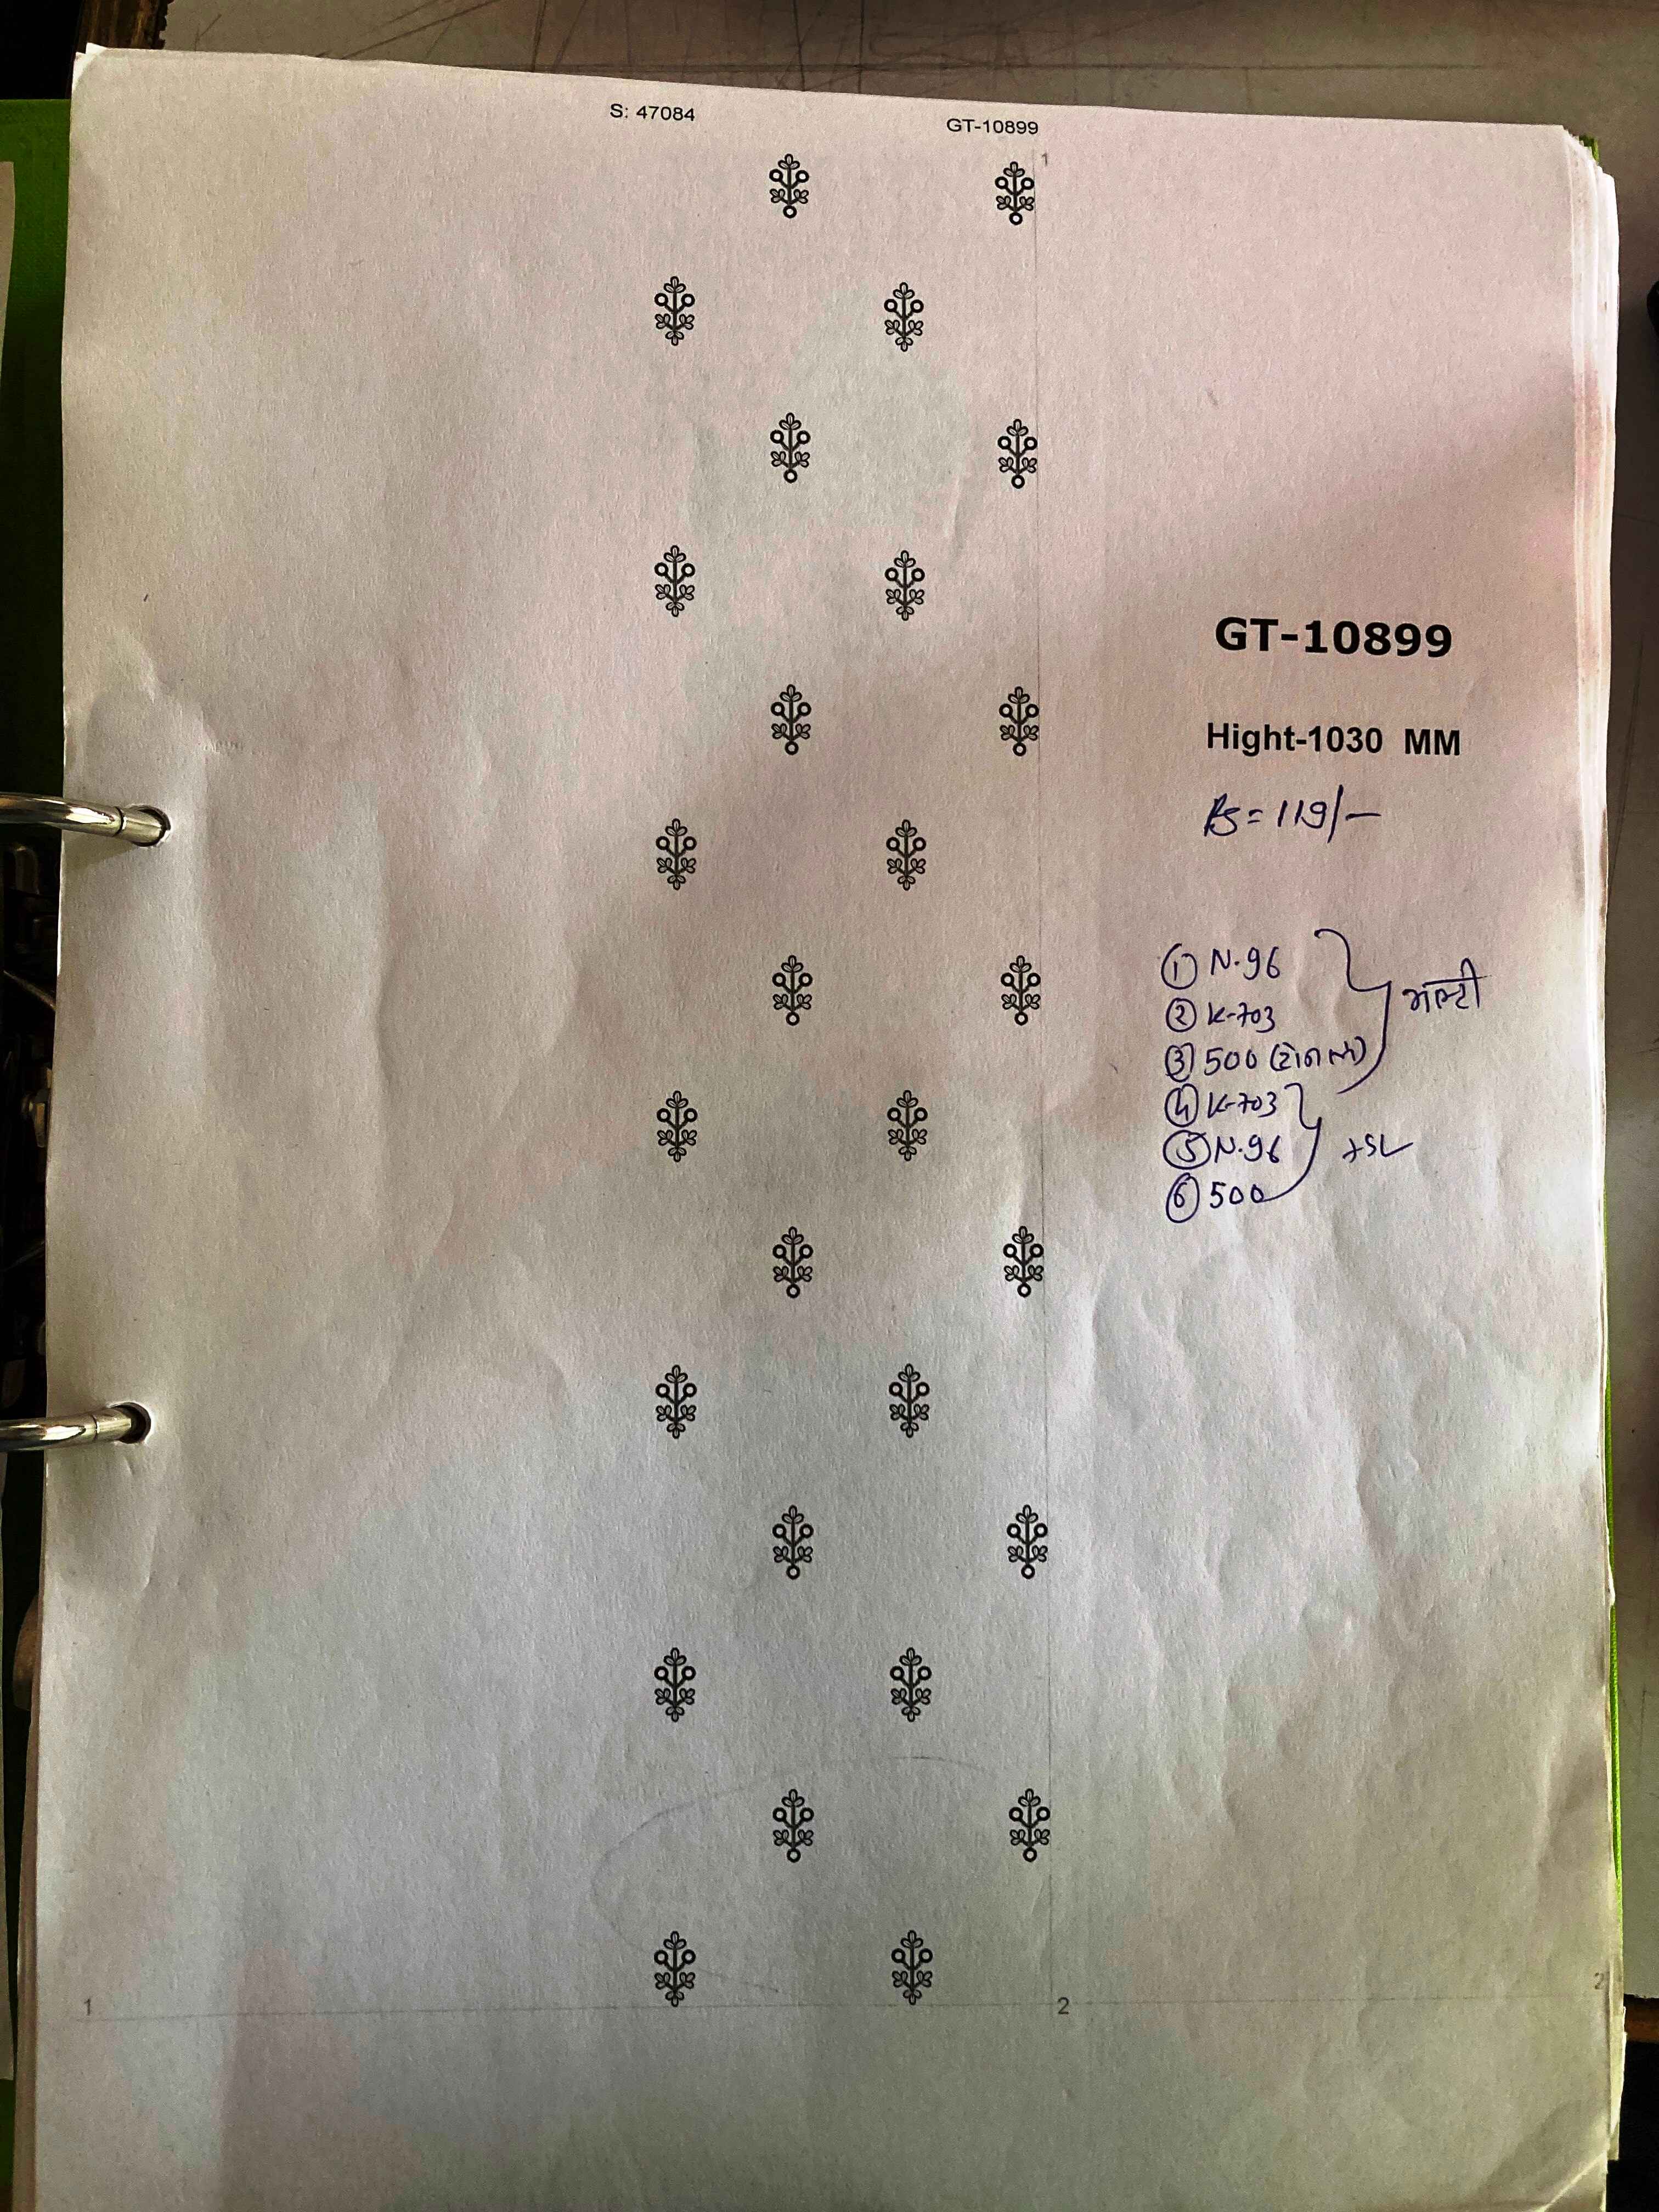 S: 47084
GT-10899
1
GT-10899
Hight-1030 MM
Rs = 119/-
① N.96
② K-703
मल्टी
③ 500
④ K-703
⑤ N.96
⑥ 500
1
2
2